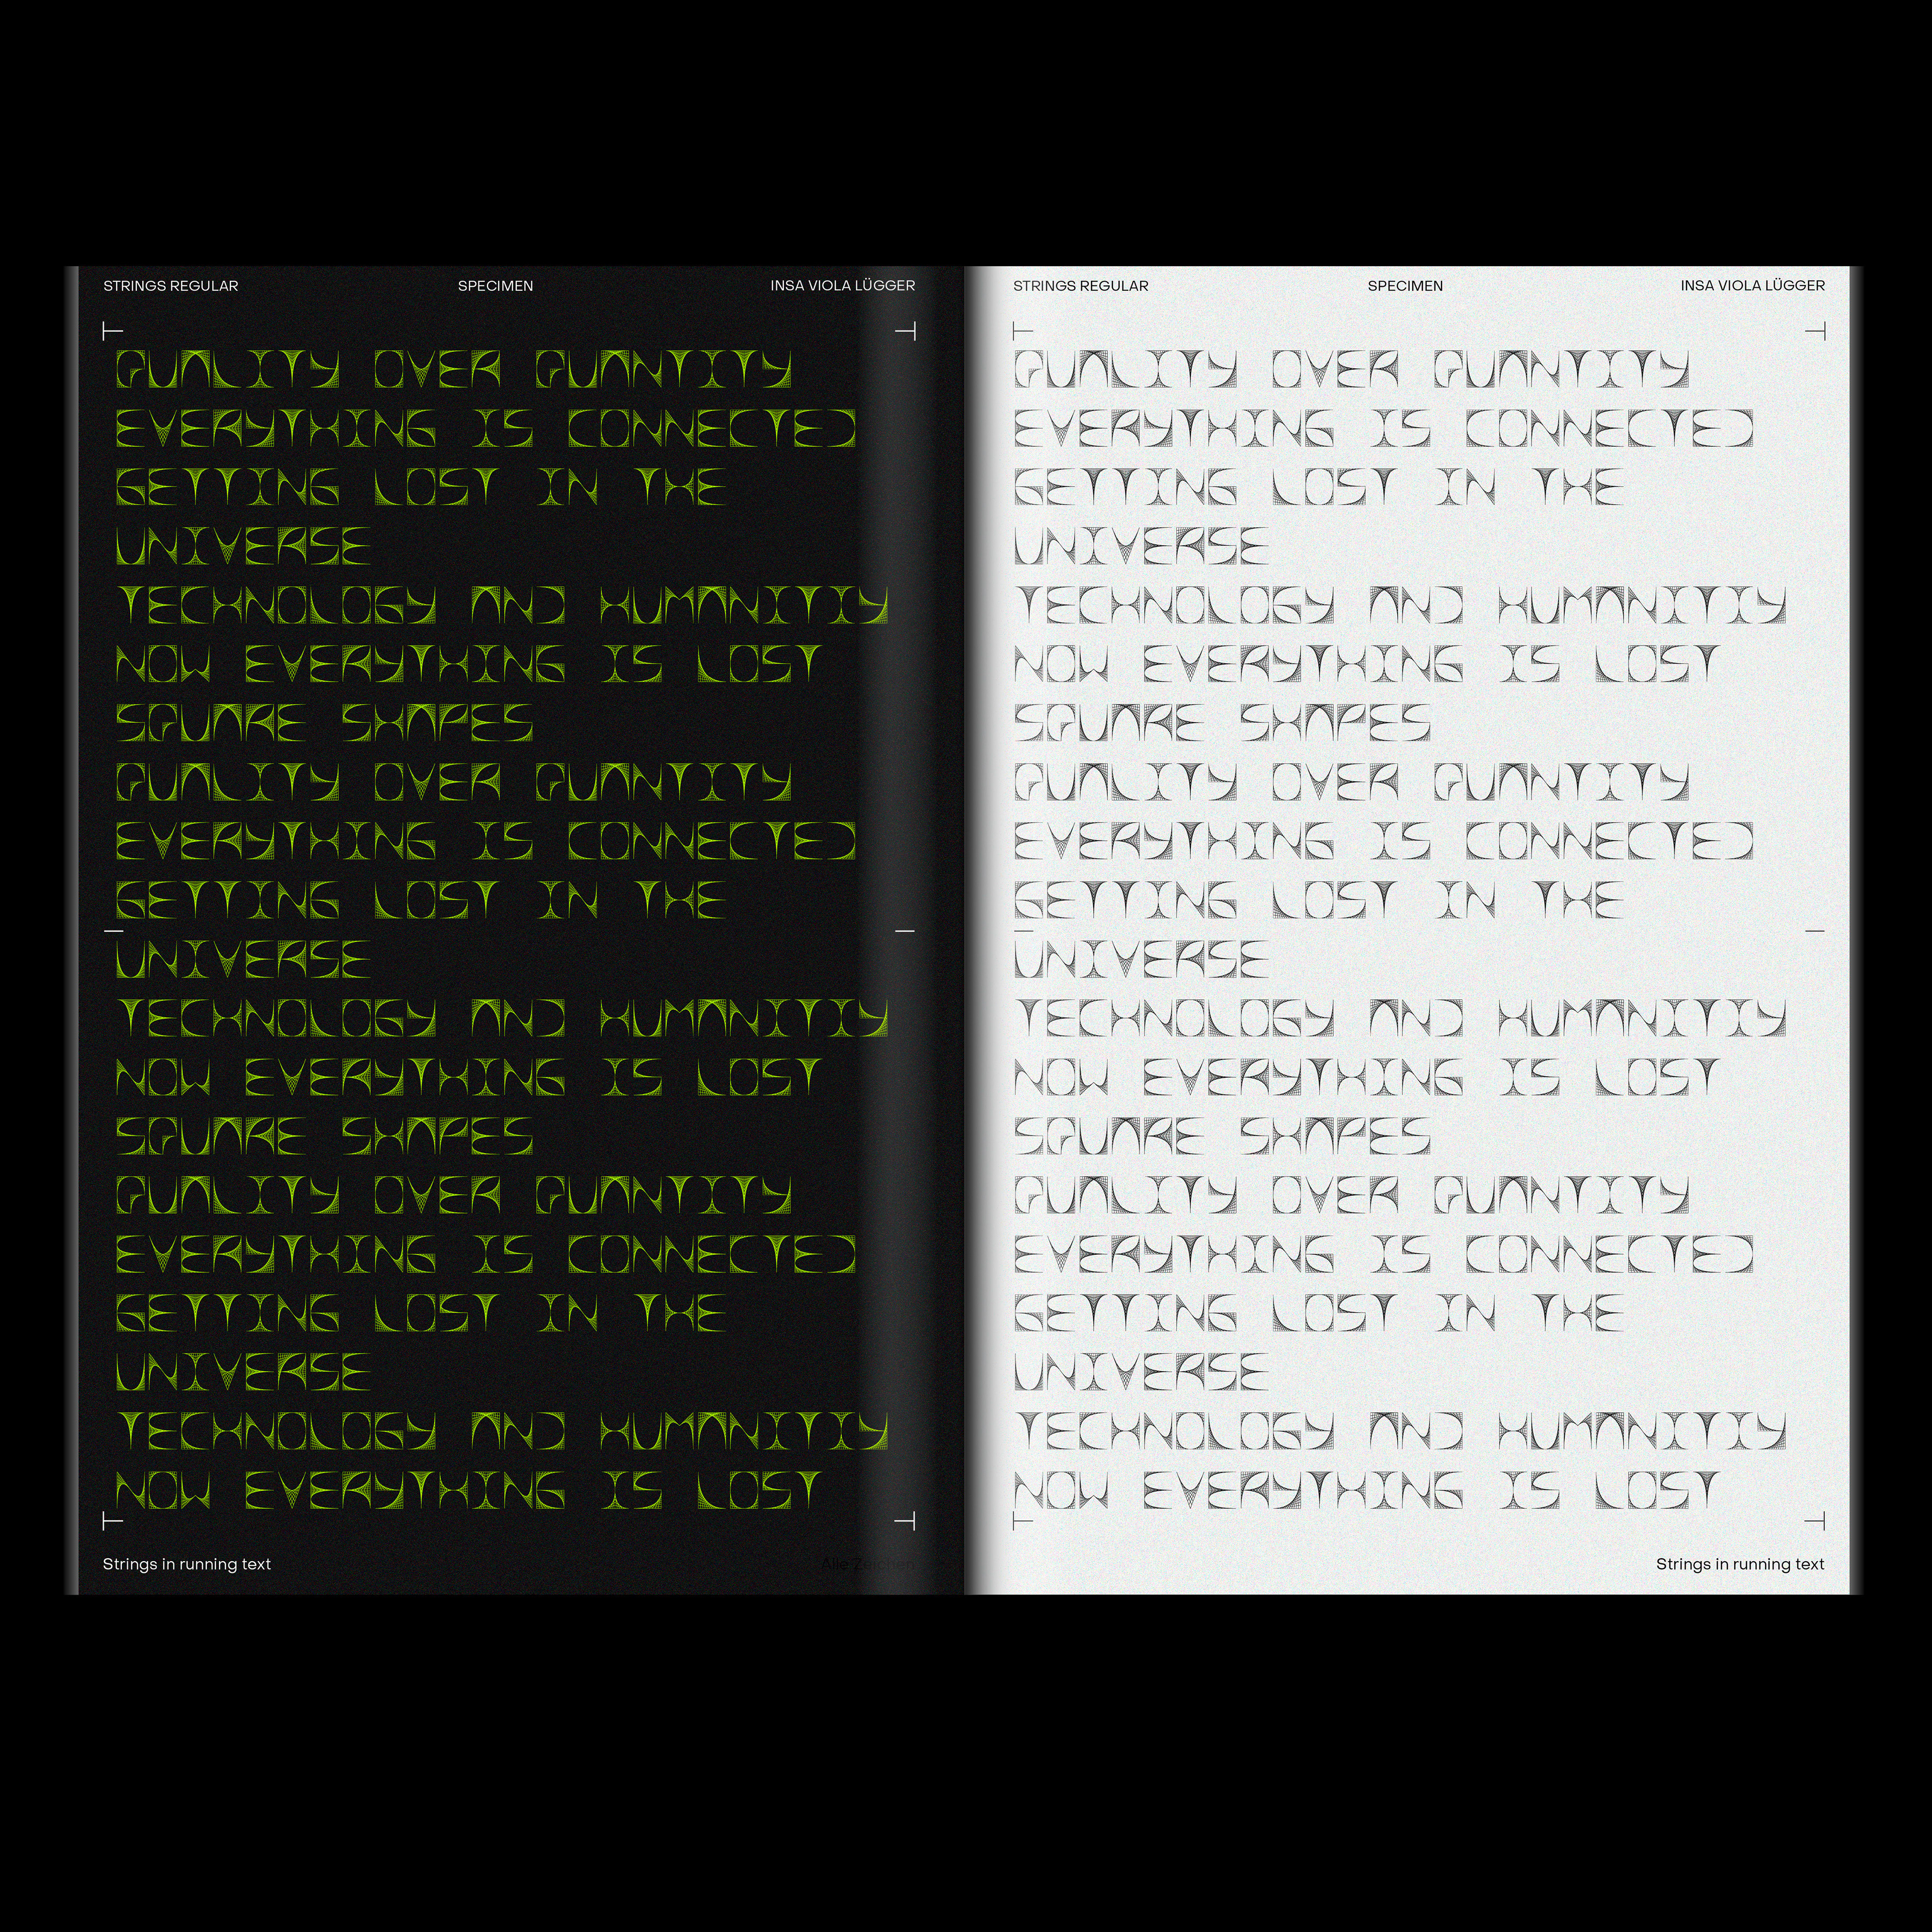 STRINGS REGULAR
SPECIMEN
INSA VIOLA LÜGGER
QUALITY OVER QUANTITY
EVERYTHING IS CONNECTED
GETTING LOST IN THE
UNIVERSE
TECHNOLOGY AND HUMANITIY
NOW EVERYTHING IS LOST
SQUARE SHAPES
QUALITY OVER QUANTITY
EVERYTHING IS CONNECTED
GETTING LOST IN THE
UNIVERSE
TECHNOLOGY AND HUMANITIY
NOW EVERYTHING IS LOST
SQUARE SHAPES
QUALITY OVER QUANTITY
EVERYTHING IS CONNECTED
GETTING LOST IN THE
UNIVERSE
TECHNOLOGY AND HUMANITIY
NOW EVERYTHING IS LOST
Strings in running text
Alle Zeichen
STRINGS REGULAR
SPECIMEN
INSA VIOLA LÜGGER
QUALITY OVER QUANTITY
EVERYTHING IS CONNECTED
GETTING LOST IN THE
UNIVERSE
TECHNOLOGY AND HUMANITIY
NOW EVERYTHING IS LOST
SQUARE SHAPES
QUALITY OVER QUANTITY
EVERYTHING IS CONNECTED
GETTING LOST IN THE
UNIVERSE
TECHNOLOGY AND HUMANITIY
NOW EVERYTHING IS LOST
SQUARE SHAPES
QUALITY OVER QUANTITY
EVERYTHING IS CONNECTED
GETTING LOST IN THE
UNIVERSE
TECHNOLOGY AND HUMANITIY
NOW EVERYTHING IS LOST
Strings in running text